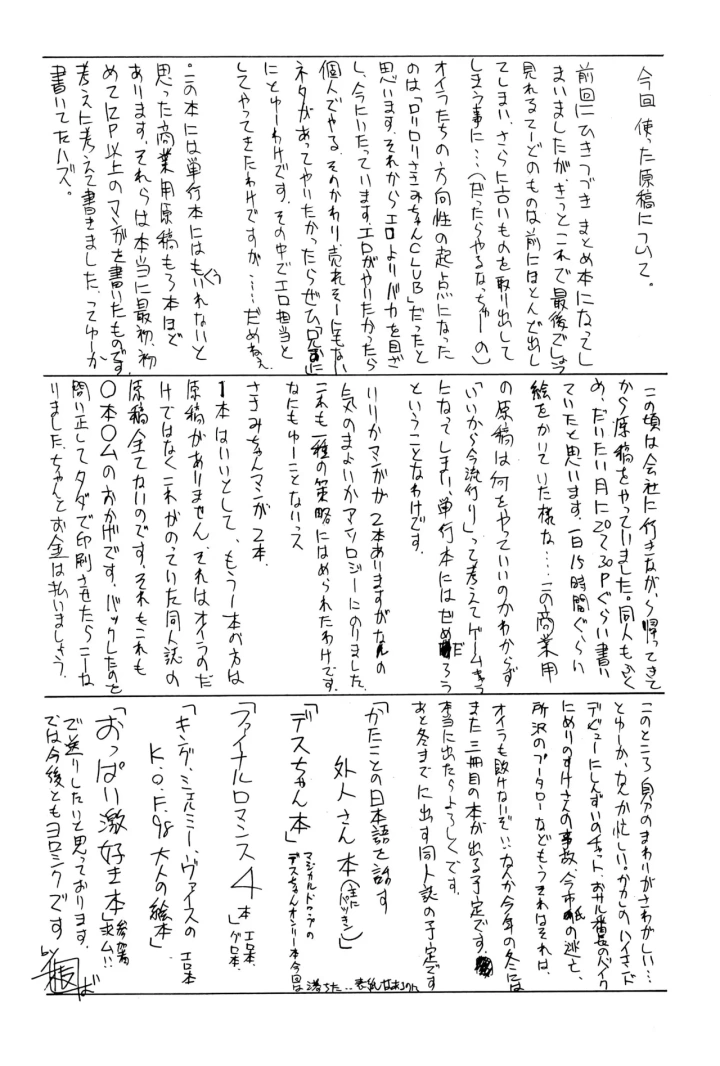 今回使った原稿について。
前回にひきつづきまとめ本になってし
まいましたがきっとこれで最後でしょう
見れるてーどのものは前にほとんど出し
てしまい、さらに古いものを取り出して
しまう事に…(だったらやるなっちゅーの)
オイラたちの方向性の起点になった
のは「ロリロリさきみちゃんCLUB」だったと
思います。それからエロよりバカを目ざ
し、今にいたっています。エロがやりたかったら
個人でやる、そのかわり、売れそーにもない
ネタがあってやりたかったらぜひ
にとゆーわけです。その中でエロ担当と
してやってきたわけですが…だめねぇ
・この本には単行本にはもういれないと
思った商業用原稿も3本ほど
あります。それらは本当に最初、初
めて12P以上のマンガを書いたものです
考えに考えて書きました、ってゆーか
書いてたハズ。
この頃は会社に行きながら帰ってきて
から原稿をやっていました。同人もふく
め、だいたい月に20〜30Pぐらい書い
ていたと思います。一日15時間ぐらい
絵をかいていた様な…この商業用
の原稿は何をやっていいのかわからず
「いいから今流行り」って考えてゲームキャラ
になってしまい、単行本にはだめだろう
ということなわけです。
いりりかマンガが2本ありますがなんの
気のまよいかアンソロジーにのりました。
これも一種の策略にはめられたわけです。
なにもゆーことないっス
さきみちゃんマンガ2本.
1本はいいとして、もう一本の方は
原稿がありません、それはオイラのだ
けではなくこれがのっていた同人誌の
原稿全てないのです。それもこれも
○本○ムのおかげです。バックしたのを
問い正してタダで印刷させたらこーな
りました、ちゃんとお金は払いましょう。
このところ自分のまわりがさわがしい…
とゆーか、なんか忙しい。かかしのハイエンド
デビューにしんずいのチャット、おサル番長のバイク
にめりのすけさんの事故、今市 の逃亡、
所沢のプータローなどもうそれはそれは、
オイラも負けないぞい、なんか今年の冬には
また三冊目の本が出る予定です。
本当に出たらよろしくです。
あと冬までに出す同人誌の予定です
「かたことの日本語を話す
外人さん本(主にパツキン)」
「デスちゃん本」マジカルドロップの
デスちゃんオンリー本今回は
落ちた‥表紙
「ファイナルロマンス4本」エロ本.グロ本.
「キング、ミニェルミー、ヴァイスの
K.O.F.98大人の絵本」エロ本
「おっぱい激好き本」参加者求ム!!
で送りしたいと思っております。
では今後ともヨロシクです
by